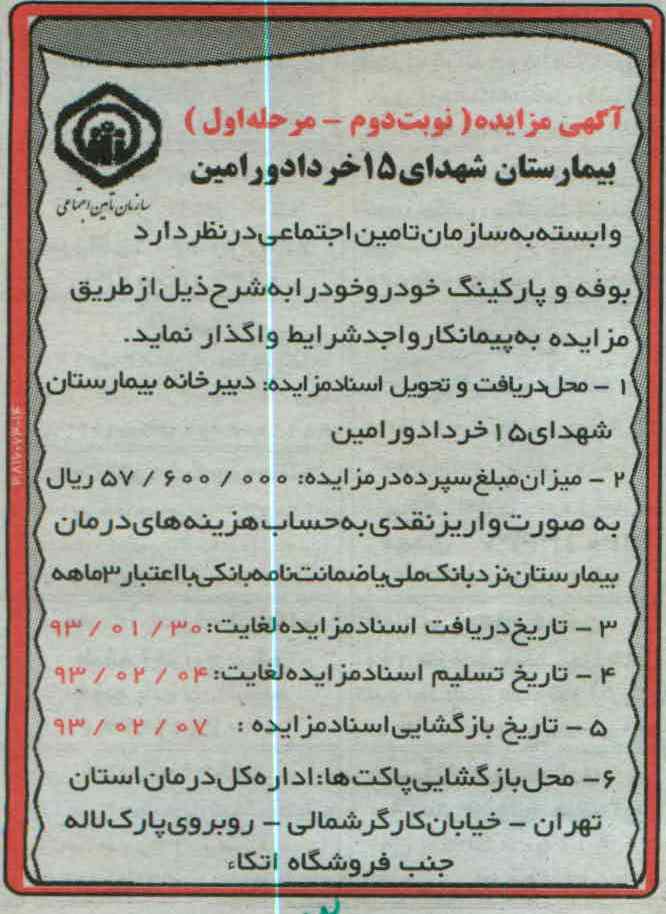 آگهی مزایده (نوبت دوم - مرحله اول)
بیمارستان شهدای ۱۵ خرداد ورامین
سازمان تامین اجتماعی
وابسته به سازمان تامین اجتماعی در نظر دارد
بوفه و پارکینگ خودرو خود را به شرح ذیل از طریق
مزایده به پیمانکار واجد شرایط واگذار نماید.
۱ - محل دریافت و تحویل اسناد مزایده: دبیرخانه بیمارستان
شهدای ۱۵ خرداد ورامین
۲ - میزان مبلغ سپرده در مزایده: ۵۷/۶۰۰/۰۰۰ ریال
به صورت واریز نقدی به حساب هزینه های درمان
بیمارستان نزد بانک ملی یا ضمانت نامه بانکی با اعتبار ۳ ماهه
۳ - تاریخ دریافت اسناد مزایده لغایت: ۹۳/۰۱/۳۰
۴ - تاریخ تسلیم اسناد مزایده لغایت: ۹۳/۰۲/۰۴
۵ - تاریخ بازگشایی اسناد مزایده : ۹۳/۰۲/۰۷
۶ - محل بازگشایی پاکت ها: اداره کل درمان استان
تهران - خیابان کارگر شمالی - روبروی پارک لاله
جنب فروشگاه اتکاء